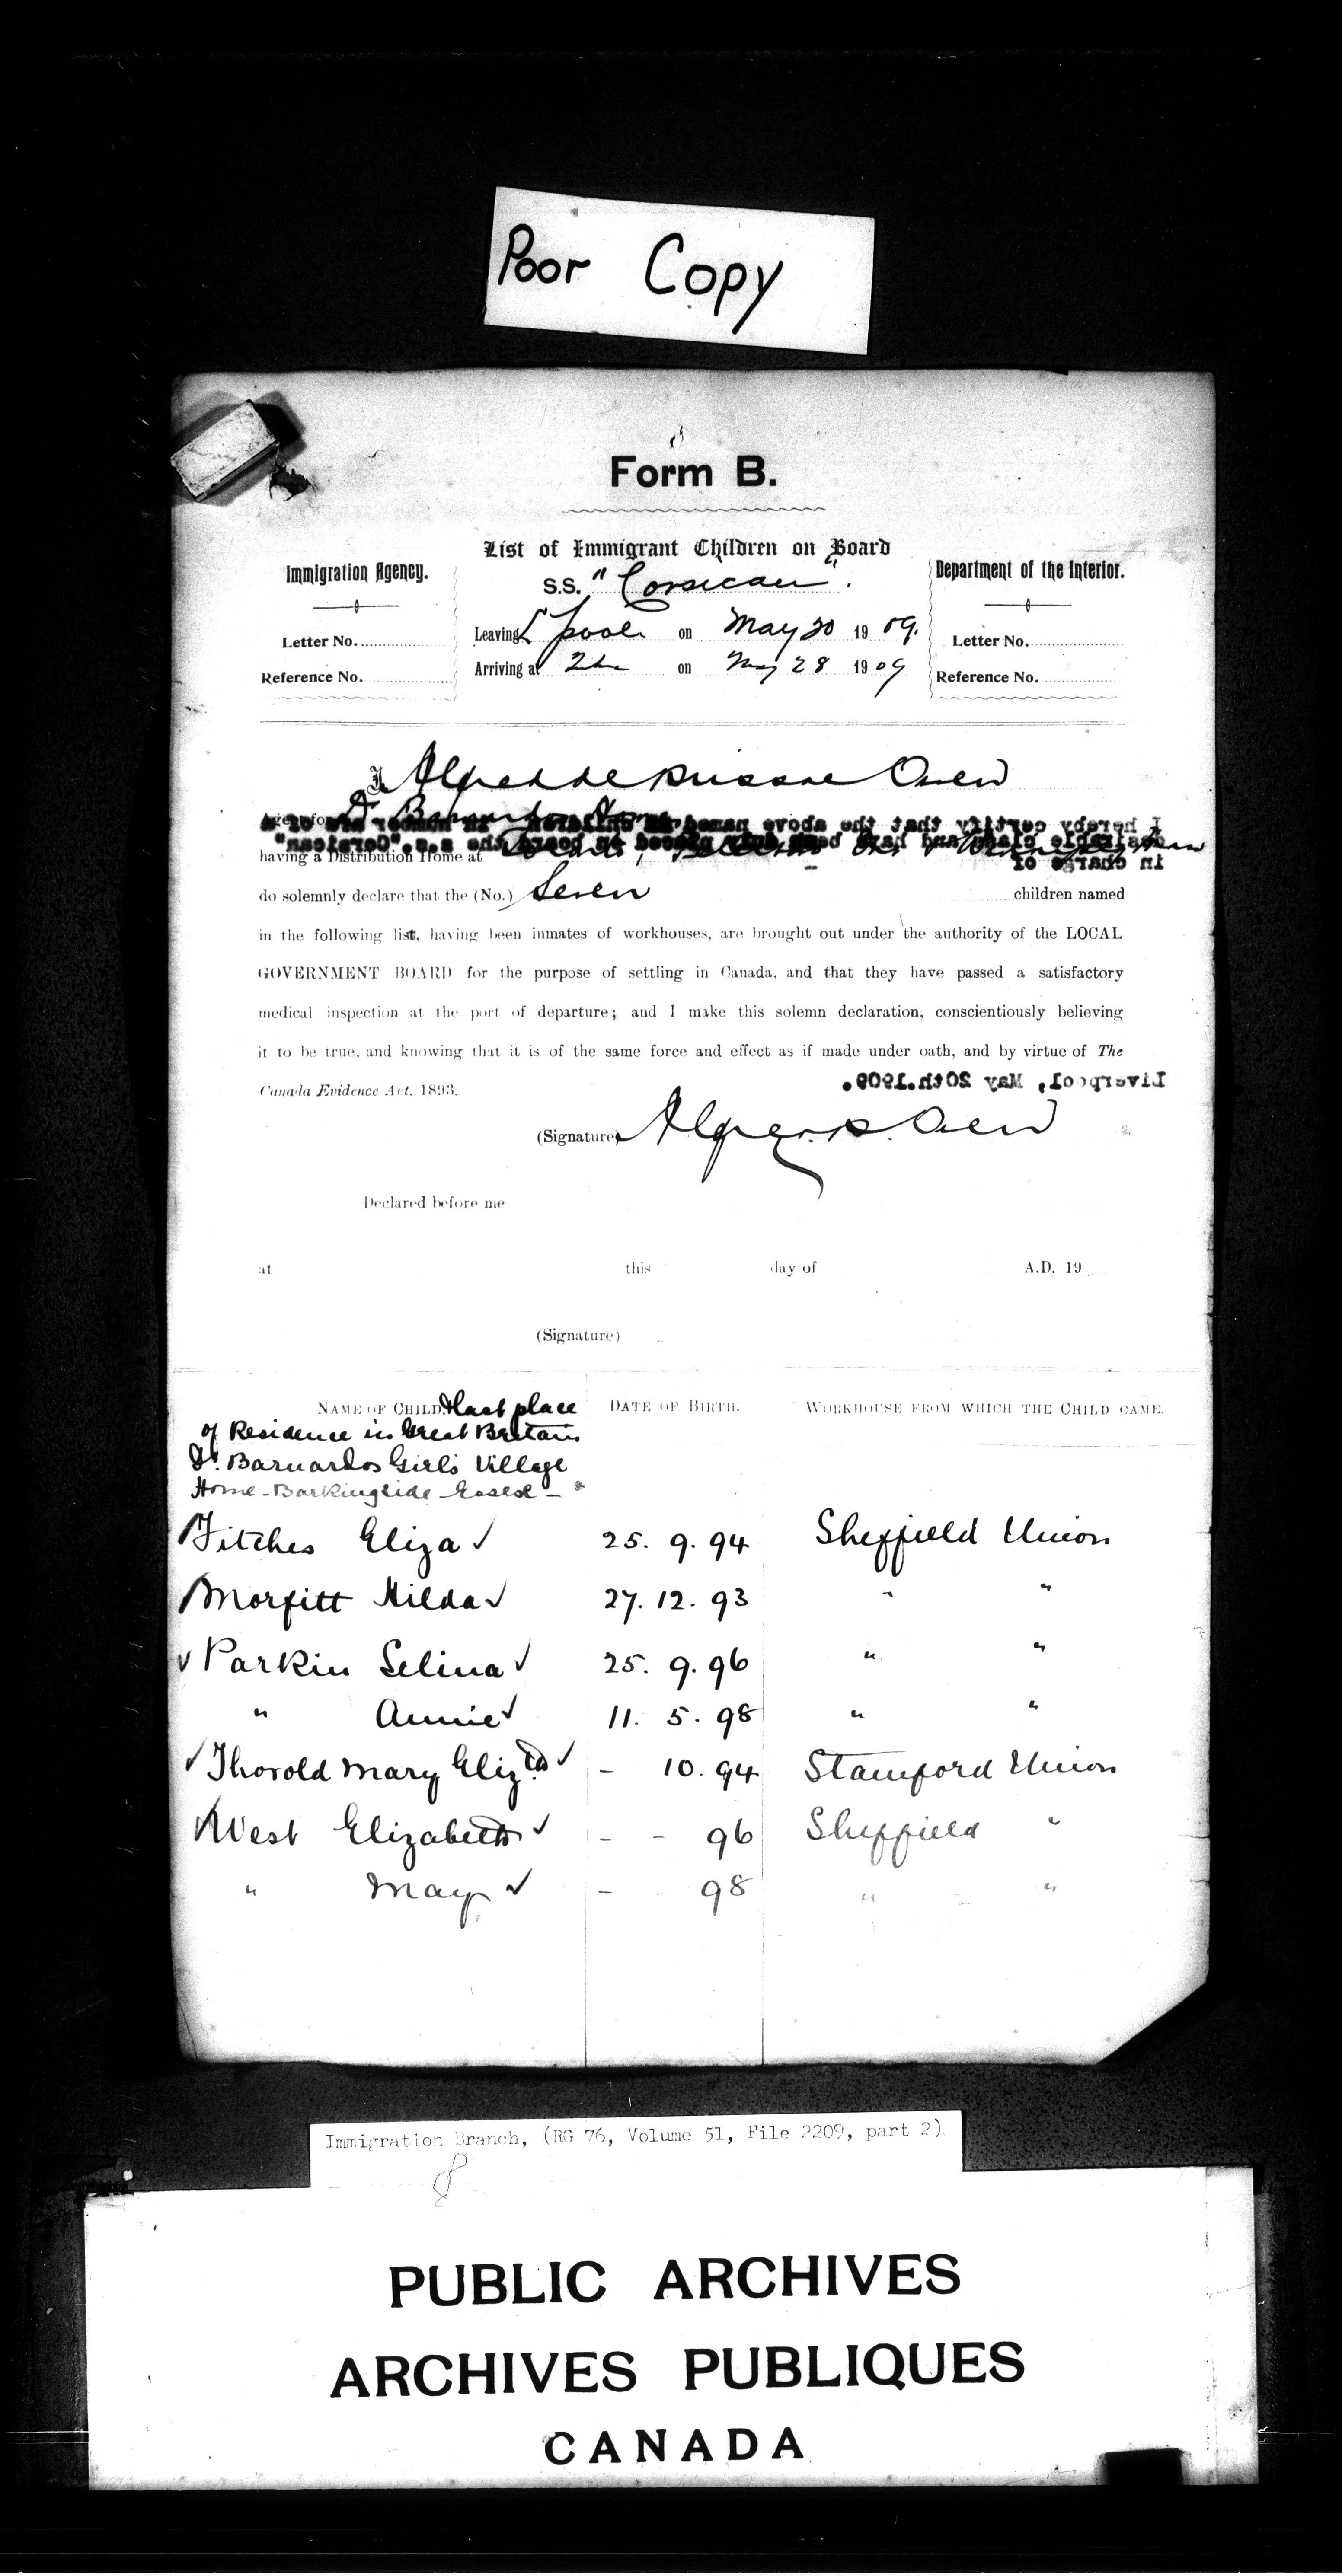 Poor Copy
Form B.
List of Immigrant Children on Board
S.S. "Corsican".
Immigration Agency.
Letter No.
Reference No.
Leaving L'pool on May 20 1909.
Arriving at Que on May 28 1909
Department of the Interior.
Letter No.
Reference No.
I, Alfred de Brissac Owen
Agent for Dr Barnardo's Homes
I hereby certify that the above named children in number are of a
desirable class and have been duly placed on board the s.s. "Corsican"
in charge of
having a Distribution Home at Toronto, Peterboro
do solemnly declare that the (No.) Seven children named
in the following list, having been inmates of workhouses, are brought out under the authority of the LOCAL
GOVERNMENT BOARD for the purpose of settling in Canada, and that they have passed a satisfactory
medical inspection at the port of departure; and I make this solemn declaration, conscientiously believing
it to be true, and knowing that it is of the same force and effect as if made under oath, and by virtue of The
Canada Evidence Act, 1893.
Liverpool, May 20th.1909.
(Signature) Alfred B. Owen
Declared before me
at this day of A.D. 19
(Signature)
NAME OF CHILD & last place
of Residence in Great Britain
Dr. Barnardos Girls Village
Home - Barkingside Essex -
DATE OF BIRTH.
WORKHOUSE FROM WHICH THE CHILD CAME.
✓ Fitches Eliza ✓ 25. 9. 94 Sheffield Union
✓ Morfitt Hilda ✓ 27. 12. 93 " "
✓ Parkin Selina ✓ 25. 9. 96 " "
" Annie ✓ 11. 5. 98 " "
✓ Thorold Mary Elizth ✓ - 10. 94 Stamford Union
✓ West Elizabeth ✓ - - 96 Sheffield "
" May ✓ - - 98 " "
Immigration Branch, (RG 76, Volume 51, File 2209, part 2)
PUBLIC ARCHIVES
ARCHIVES PUBLIQUES
CANADA